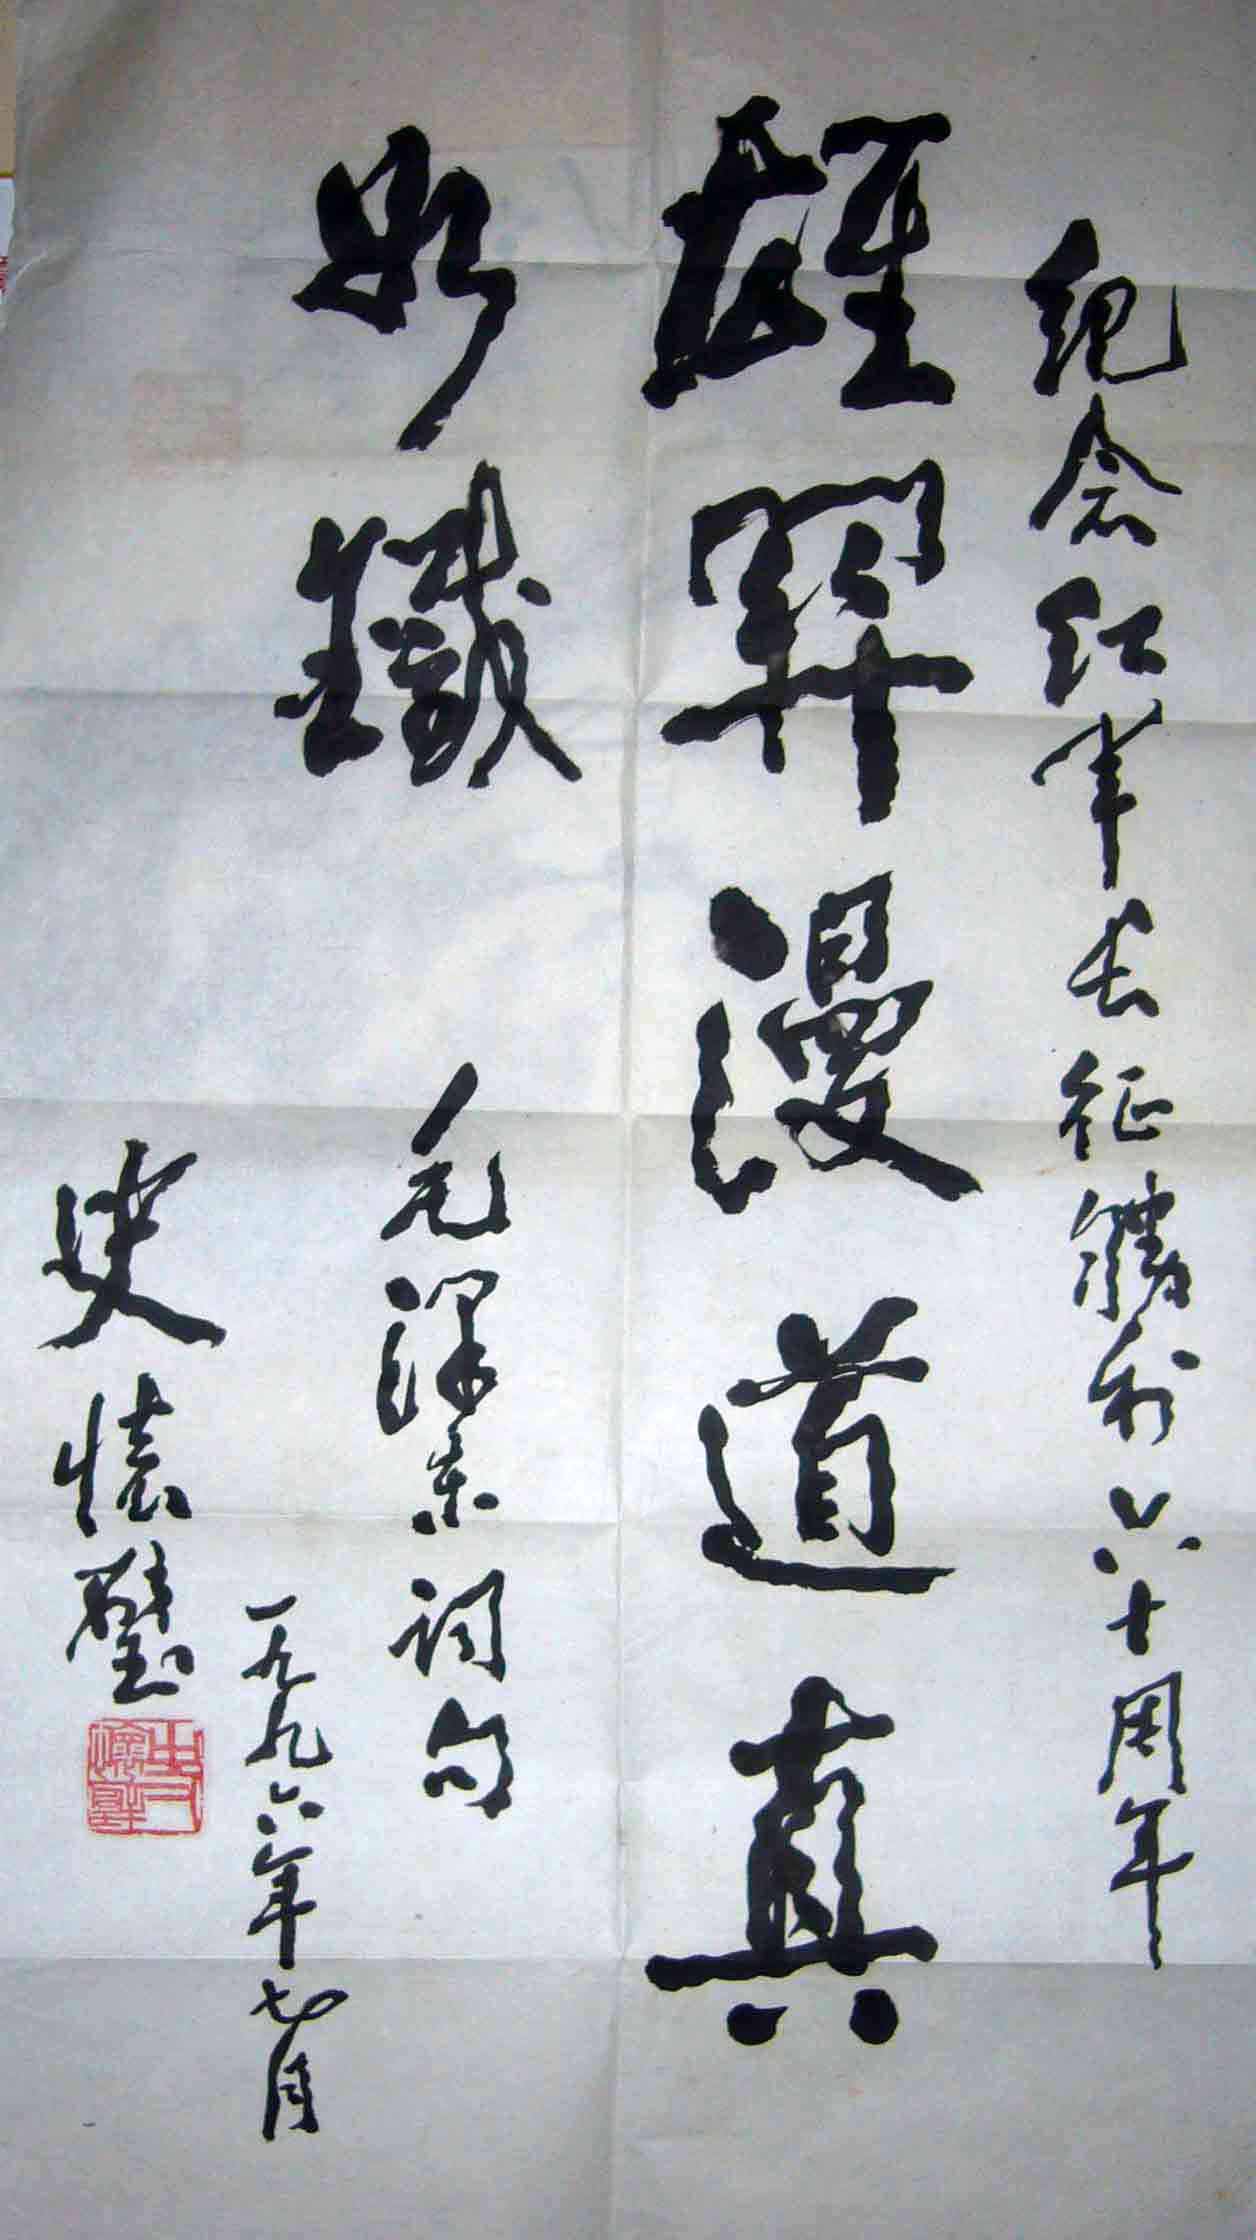 纪念红军长征胜利六十周年
雄關漫道真
如鐵
毛泽东词句
一九九六年七月
史怀璧
史懷璧